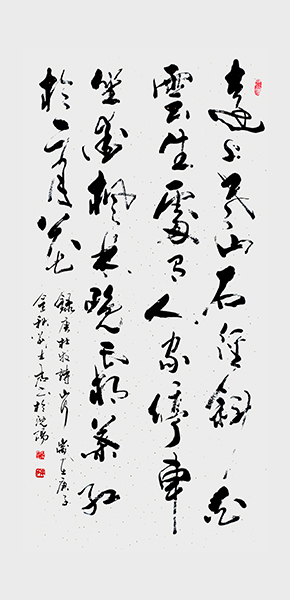 遠上寒山石徑斜白
雲生處有人家停車
坐愛楓林晚霜葉紅
於二月花
錄唐杜牧詩山行 歲在庚子
金秋 於瀋陽